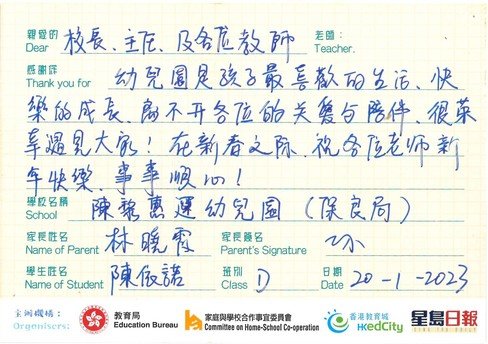 親愛的 校長、主任、及各位教師 老師：
Dear Teacher.
感謝你 幼兒園是孩子最喜歡的生活、快
Thank you for
樂的成長、離不开各位的关爱与陪伴、很荣
幸遇見大家！在新春之际、祝各位老师新
年快樂、事事順心！
學校名稱 陳黎惠蓮幼兒園（保良局）
School
家長姓名 林曉霞 家長簽名
Name of Parent Parent's Signature
學生姓名 陳依諾 班別 D 日期 20-1-2023
Name of Student Class Date
主辦機構：
Organisers:
教育局
Education Bureau
家庭與學校合作事宜委員會
Committee on Home-School Co-operation
香港教育城
HKedCity
星島日報